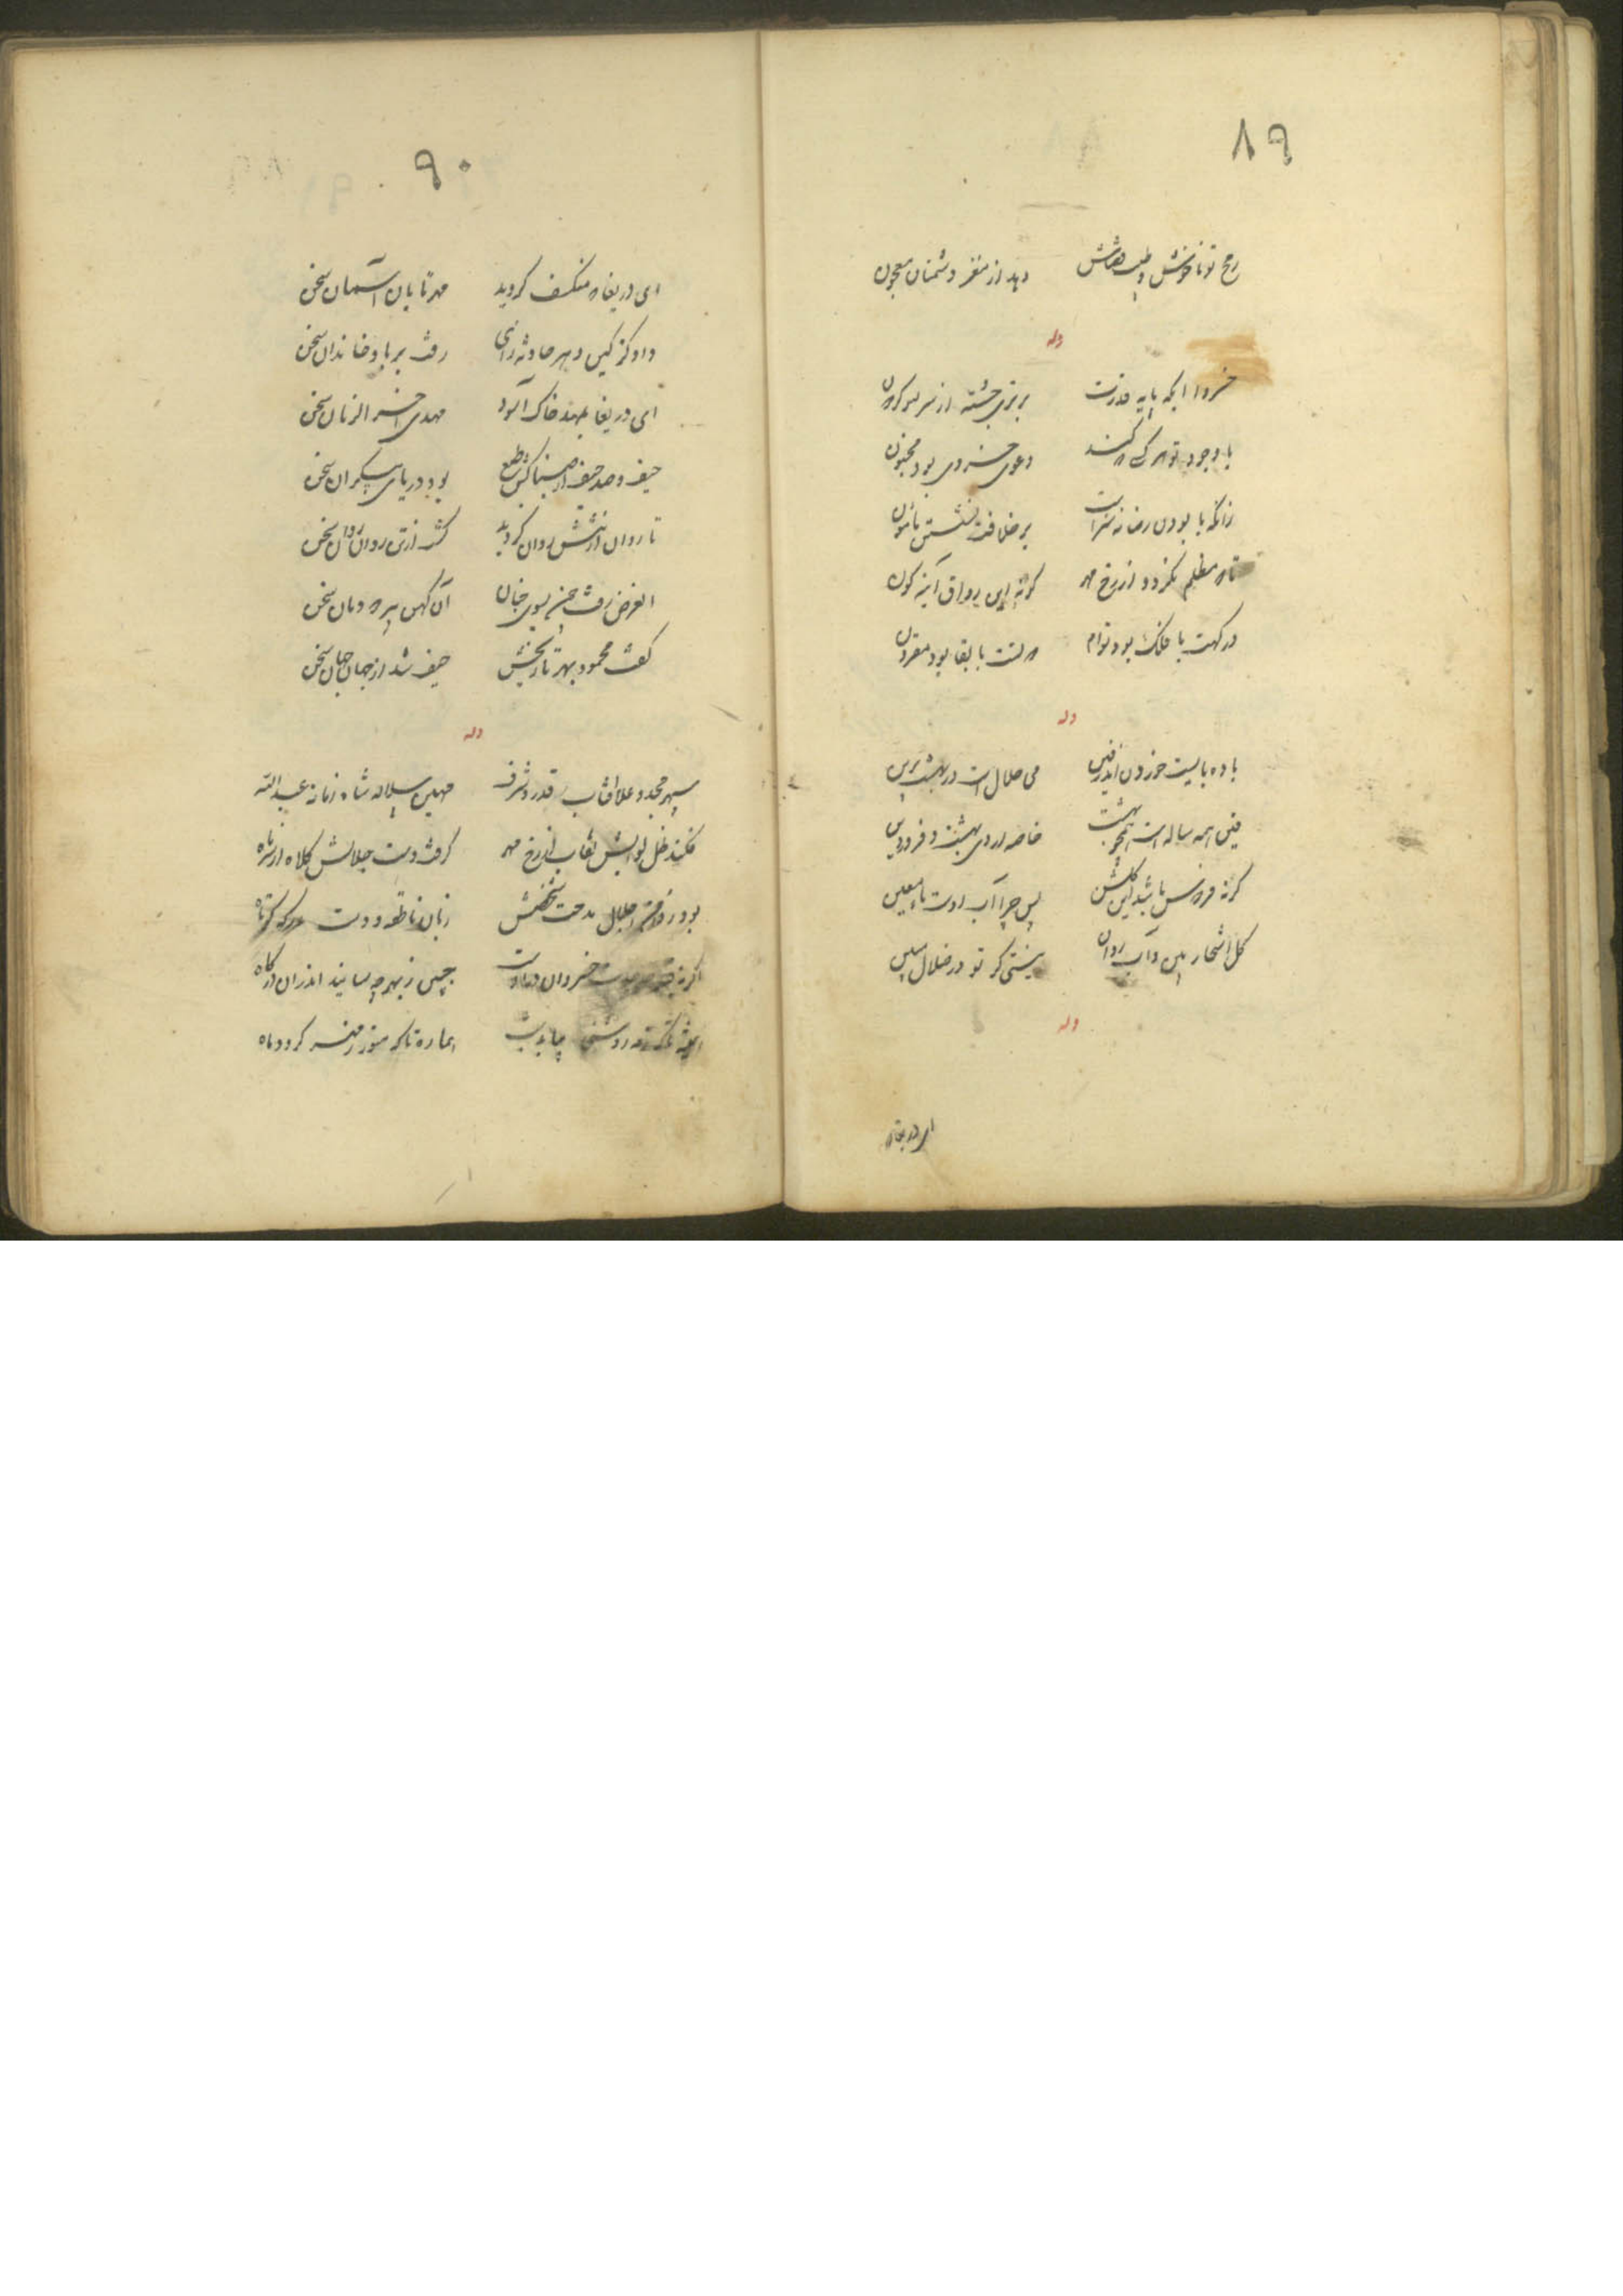 ۸۹
رمح تو ناخوش و طبیب هشش دهد از مغز دشمنان معجون
وله
خسروا ایکه پایه قدرت برتری جسته از سر گردون
با وجود تو هر که کند دعوی خسروی بود مجنون
زانکه با بودن رضا نه سزاست بر خلافت نشستن مامون
تا که مظلم نگردد از رخ مهر گونه این رواق آینه گون
درگهت با فلک بود توام دولتت با بقا بود مقرون
وله
باده بایست خوردن اندر فین می حلال است در بهشت برین
فین همه ساله است همچو بهشت خاصه اردی بهشت و فروردین
گرنه فردوس باشد این گلشن پس چرا آب اوست ماء معین
گل اشجار بین و آب روان نیستی گر تو در ضلال مبین
وله
ای دریغا که
۹۰
ای دریغا که منکسف گردید مهر تابان آسمان سخن
داد کز کین دهر حادثه زای رفت بر باد خاندان سخن
ای دریغا بمهد خاک آسود مهدی آخر الزمان سخن
حیف و صد حیف از صبا کش طبع بود دریای بیکران سخن
تا روان از تنش روان گردید گشت از تن روان روان سخن
الغرض رفت چون بسوی جنان آن کهن پیر دودمان سخن
گفت محمود بهر تاریخش حیف شد از جهان جهان سخن
وله
سپهر مجد و علا آفتاب قدر و شرف مهین سلاله شاه زمانه عبدالله
فکند ظل لوایش نقاب از رخ مهر گرفت دست جلالش کلاه از سر ماه
بود ز دفتر اجلال مدحت شخصش زبان ناطقه و دست مدرکه کوتاه
اگرنه خسروان در اوست جبین ز بهر چه سایند اندران درگاه
همیشه تا که روشنی بیابد شب هماره تا که منور ز مهر گردد ماه